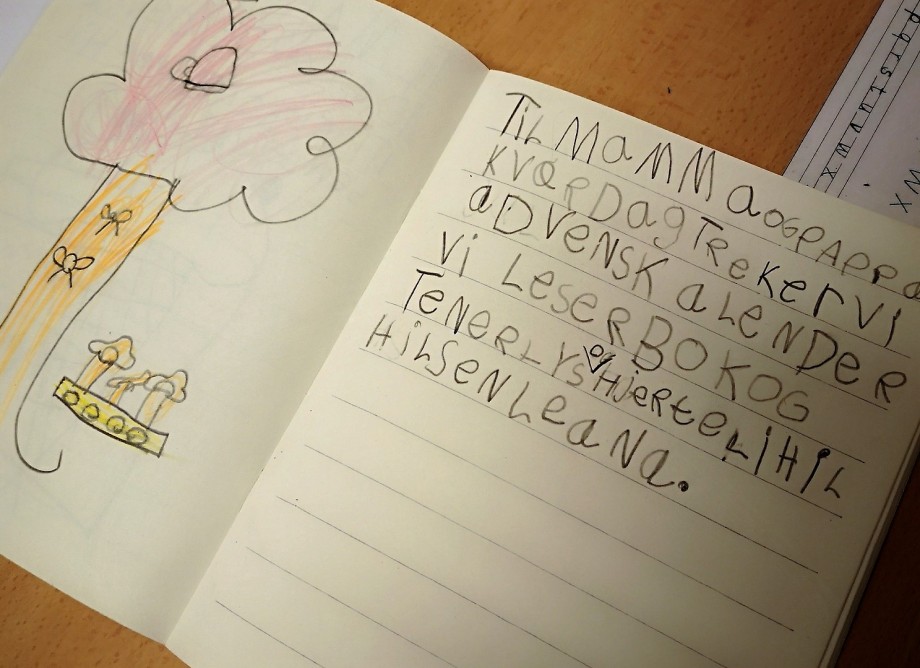 TiL MaMMaOGPAPPa
KVaRDagTReKerVi
aDVeNSKaLeNDeR
Vi LeSeRBOKOG
TeNeRLYS og HjeRTeLiHiL
HiLSeNLeaNa.
pqrstuvwx
Wx